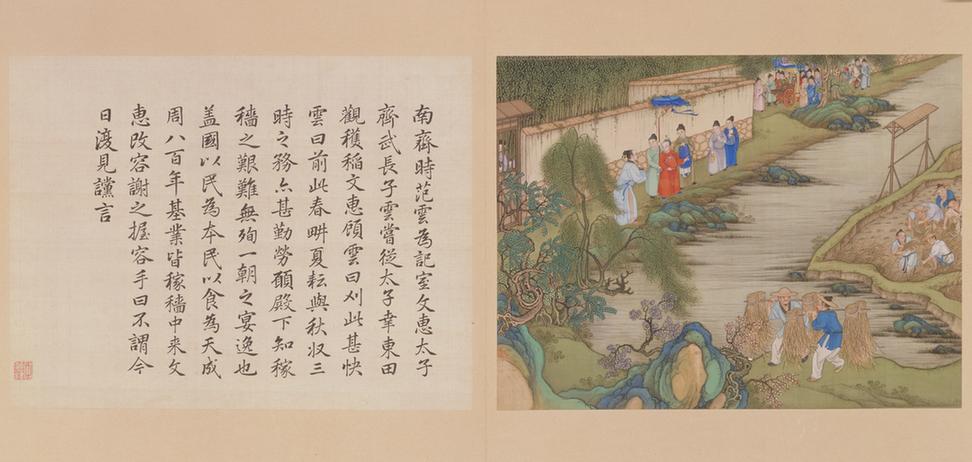 南齊時范雲為記室文惠太子
齊武長子雲嘗從太子幸東田
觀穫稻文惠顧雲曰刈此甚快
雲曰前此春畊夏耘與秋収三
時之務亦甚勤勞願殿下知稼
穡之艱難無殉一朝之宴逸也
盖國以民為本民以食為天成
周八百年基業皆稼穡中来文
惠改容謝之握容手曰不謂今
日渡見讜言